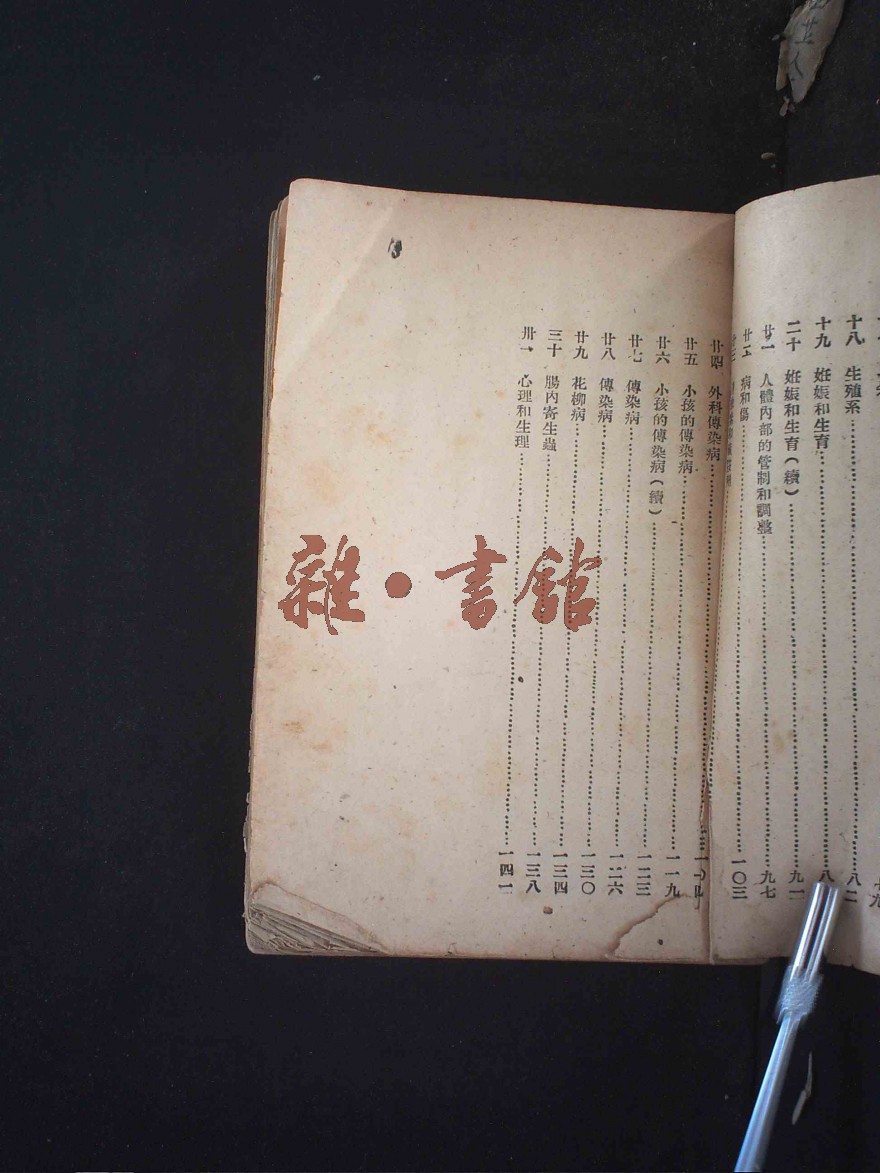 十八 生殖系……八二
十九 妊娠和生育……八
二十 妊娠和生育(續)……九
廿一 人體內部的管制和調整……九七
廿二 病和傷……一〇三
廿四 外科傳染病……
廿五 小孩的傳染病……一一九
廿六 小孩的傳染病(續)……一二三
廿七 傳染病……一二六
廿八 傳染病……一三〇
廿九 花柳病……一三四
三十 腸內寄生蟲……一三八
卅一 心理和生理……一四一
雜·書館